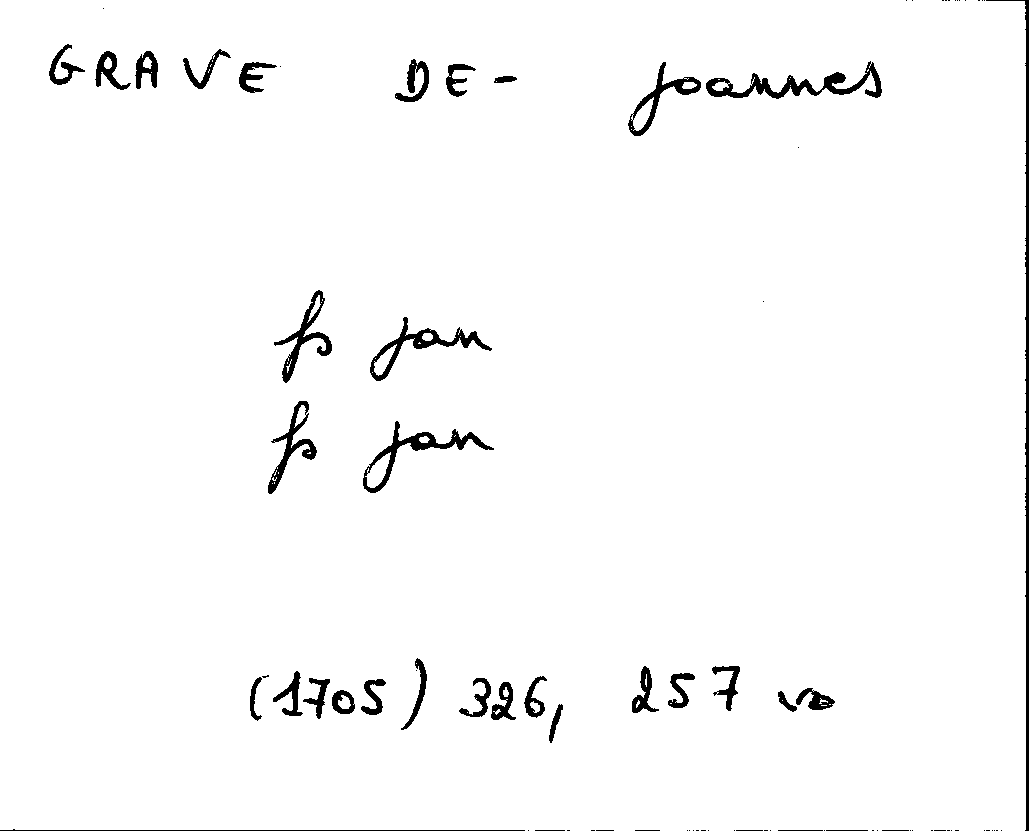 GRAVE DE- Joannes
fs Jan
fs Jan
(1705) 326, 257 vo